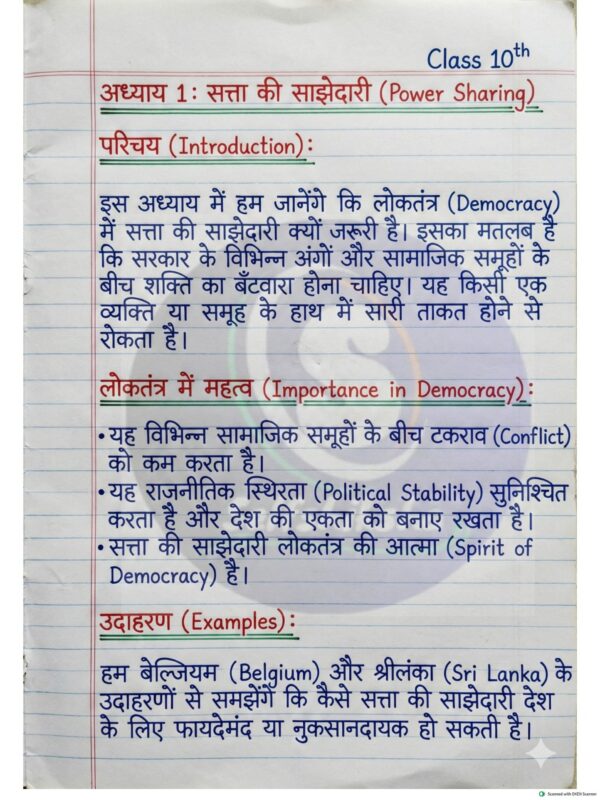 Class 10th
अध्याय 1: सत्ता की साझेदारी (Power Sharing)
परिचय (Introduction):
इस अध्याय में हम जानेंगे कि लोकतंत्र (Democracy)
में सत्ता की साझेदारी क्यों जरूरी है। इसका मतलब है
कि सरकार के विभिन्न अंगों और सामाजिक समूहों के
बीच शक्ति का बँटवारा होना चाहिए। यह किसी एक
व्यक्ति या समूह के हाथ में सारी ताकत होने से
रोकता है।
लोकतंत्र में महत्व (Importance in Democracy):
• यह विभिन्न सामाजिक समूहों के बीच टकराव (Conflict)
को कम करता है।
• यह राजनीतिक स्थिरता (Political Stability) सुनिश्चित
करता है और देश की एकता को बनाए रखता है।
• सत्ता की साझेदारी लोकतंत्र की आत्मा (Spirit of
Democracy) है।
उदाहरण (Examples):
हम बेल्जियम (Belgium) और श्रीलंका (Sri Lanka) के
उदाहरणों से समझेंगे कि कैसे सत्ता की साझेदारी देश
के लिए फायदेमंद या नुकसानदायक हो सकती है।